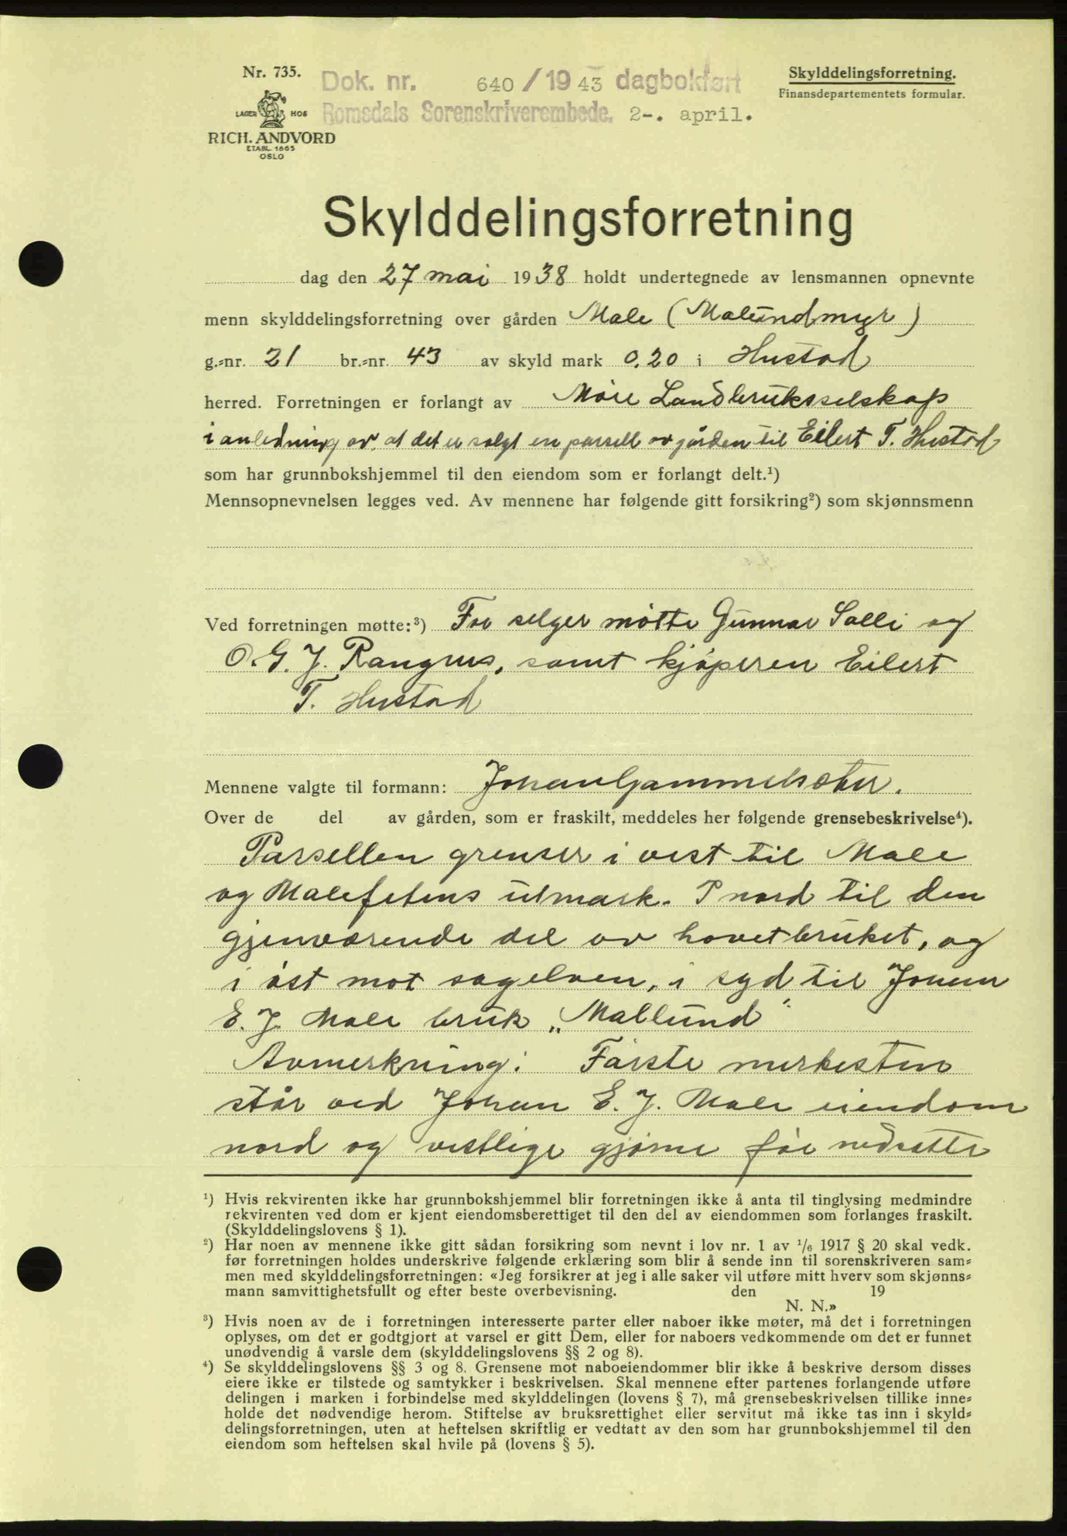 Nr. 735.
Dok. nr. 640/1943 dagbokført
Romsdals Sorenskriverembede. 2-. april.
Skylddelingsforretning.
Finansdepartementets formular.
LAGER HOS
RICH. ANDVORD
ETABL. 1865
OSLO
Skylddelingsforretning
dag den 27 mai 1938 holdt undertegnede av lensmannen opnevnte
menn skylddelingsforretning over gården Male (Malundmyr)
g.-nr. 21 br.-nr. 43 av skyld mark 0,20 i Hustad
herred. Forretningen er forlangt av Møre Landbruksselskap
i anledning av at det er solgt en parsell av gården til Eilert T. Hustad
som har grunnbokshjemmel til den eiendom som er forlangt delt.¹)
Mennsopnevnelsen legges ved. Av mennene har følgende gitt forsikring²) som skjønnsmenn
Ved forretningen møtte:³) For selger møtte Gunnar Salli og
O. G. J. Rangnes, samt kjøperen Eilert
T. Hustad
Mennene valgte til formann: Johan Gammelsæter.
Over de del av gården, som er fraskilt, meddeles her følgende grensebeskrivelse⁴).
Parsellen grenser i vest til Male
og Malefetens utmark. I nord til den
gjenværende del av hovetbruket, og
i øst mot sagelven, i syd til Johan
E. J. Male bruk „Mallund"
Avmerkning: Første merkesten
står ved Johan E. J. Male eiendom
nord og vestlige gjørne før nedsatte
¹) Hvis rekvirenten ikke har grunnbokshjemmel blir forretningen ikke å anta til tinglysing medmindre
rekvirenten ved dom er kjent eiendomsberettiget til den del av eiendommen som forlanges fraskilt.
(Skylddelingslovens § 1).
²) Har noen av mennene ikke gitt sådan forsikring som nevnt i lov nr. 1 av 1/6 1917 § 20 skal vedk.
før forretningen holdes underskrive følgende erklæring som blir å sende inn til sorenskriveren sam-
men med skylddelingsforretningen: «Jeg forsikrer at jeg i alle saker vil utføre mitt hverv som skjønns-
mann samvittighetsfullt og efter beste overbevisning. den 19
N. N.»
³) Hvis noen av de i forretningen interesserte parter eller naboer ikke møter, må det i forretningen
oplyses, om det er godtgjort at varsel er gitt Dem, eller for naboers vedkommende om det er funnet
unødvendig å varsle dem (skylddelingslovens §§ 2 og 8).
⁴) Se skylddelingslovens §§ 3 og 8. Grensene mot naboeiendommer blir ikke å beskrive dersom disses
eiere ikke er tilstede og samtykker i beskrivelsen. Skal mennene efter partenes forlangende utføre
delingen i marken i forbindelse med skylddelingen (lovens § 7), må grensebeskrivelsen tillike inne-
holde det nødvendige herom. Stiftelse av bruksrettighet eller servitut må ikke tas inn i skyld-
delingsforretningen, uten at heftelsen skriftlig er vedtatt av den som har grunnbokshjemmel til den
eiendom som heftelsen skal hvile på (lovens § 5).